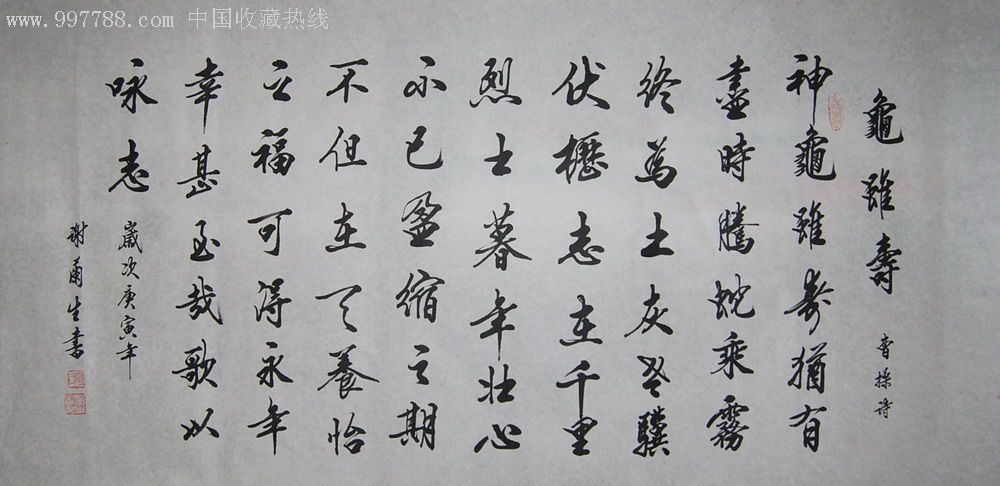 www.997788.com 中国收藏热线
龜雖壽
曹操詩
神龜雖寿猶有
盡時騰蛇乘霧
終為土灰老驥
伏櫪志在千里
烈士暮年壯心
不已盈縮之期
不但在天養怡
之福可得永年
幸甚至哉歌以
咏志
歲次庚寅年
謝生書